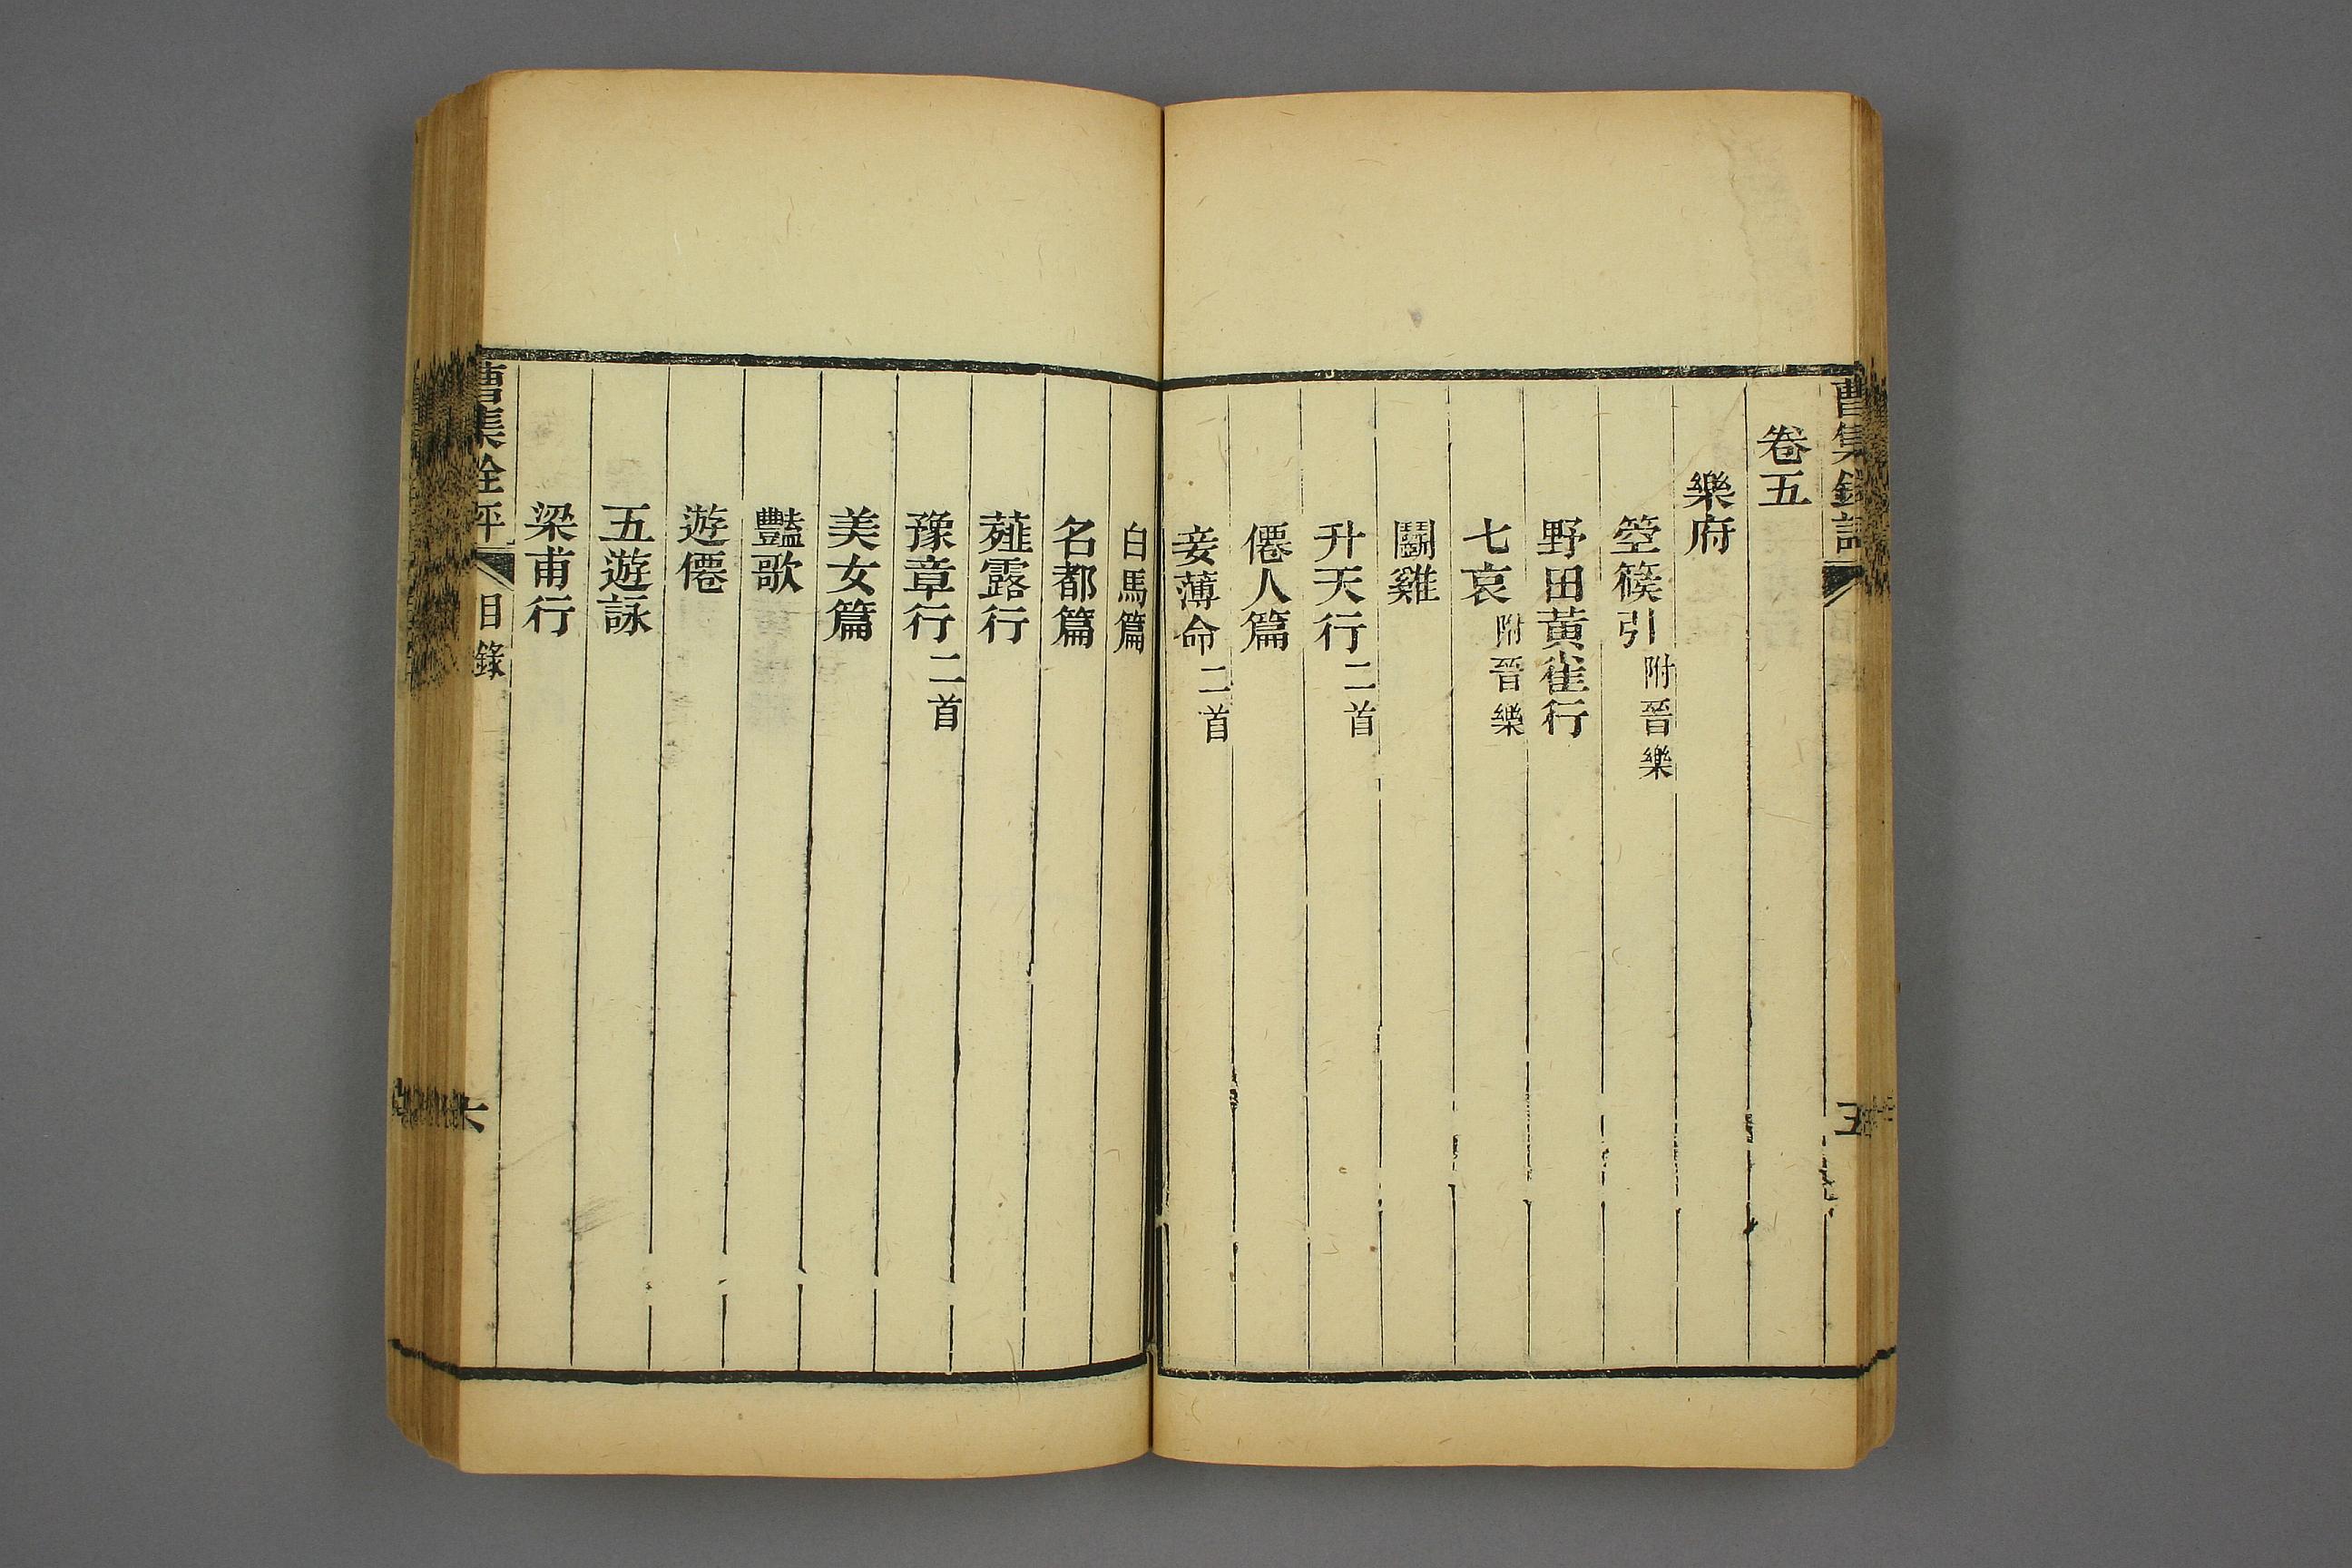 卷五
樂府
箜篌引附晉樂
野田黃雀行
七哀附晉樂
鬬雞
升天行二首
僊人篇
妾薄命二首
白馬篇
名都篇
薤露行
豫章行二首
美女篇
豔歌
遊僊
五遊詠
梁甫行
曹集銓評
目錄
六
曹集銓評
五